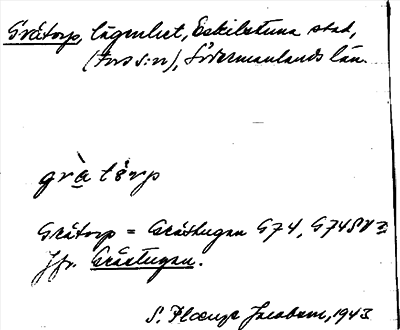 Gråtorp, lägenhet, Eskilstuna stad,
(Fors s:n), Södermanlands län.
gràtorp
Gråtorp = Gråstugan G74, G74SV
Jfr. Gråstugan.
S. Jacobson, 1943